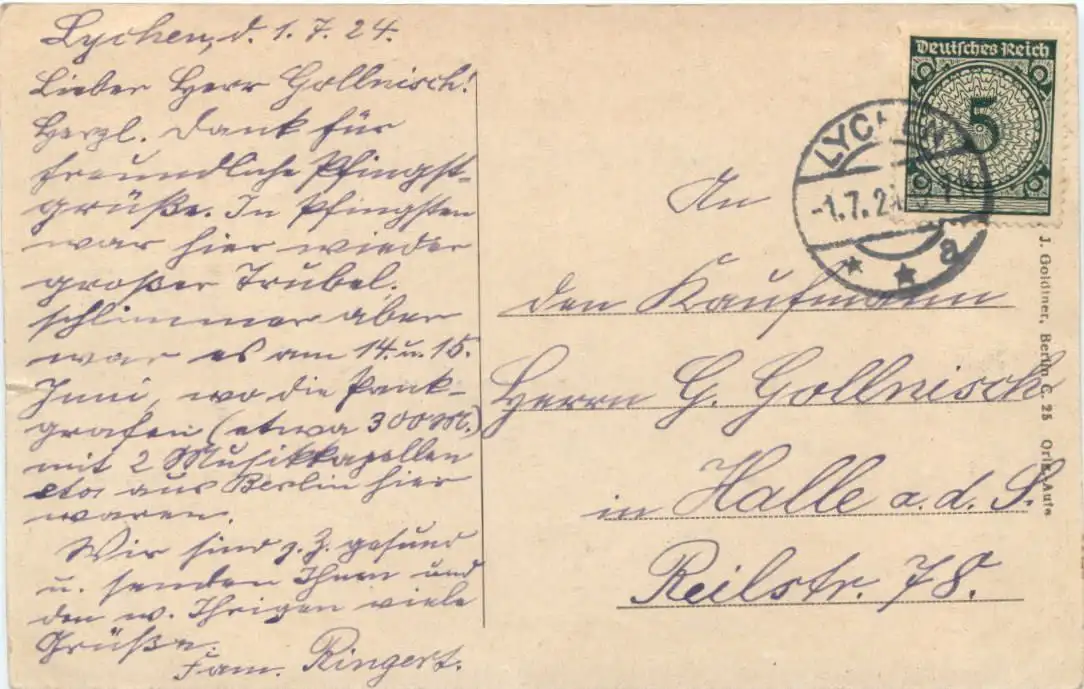 Lychen, d. 1. 7. 24.
Lieber Herr Gollnisch!
Herzl. Dank für
freundliche Pfingst-
grüße. In Pfingsten
war hier wieder
großer Trubel.
schlimmer aber
war es am 14. u. 15.
Juni, wo die Pank-
grafen (etwa 300 M.)
mit 2 Musikkapellen
etc. aus Berlin hier
waren.
Wir sind z. Z. gesund
u. senden Ihnen und
den w. Ihrigen viele
Grüße.
Fam. Ringert.
Deutsches Reich
5
LYCHEN
-1.7.24
a
An
den Kaufmann
Herrn G. Gollnisch
in Halle a. d. S.
Reilstr. 78.
J. Goldiner, Berlin C. 25 Orig.-Aufn